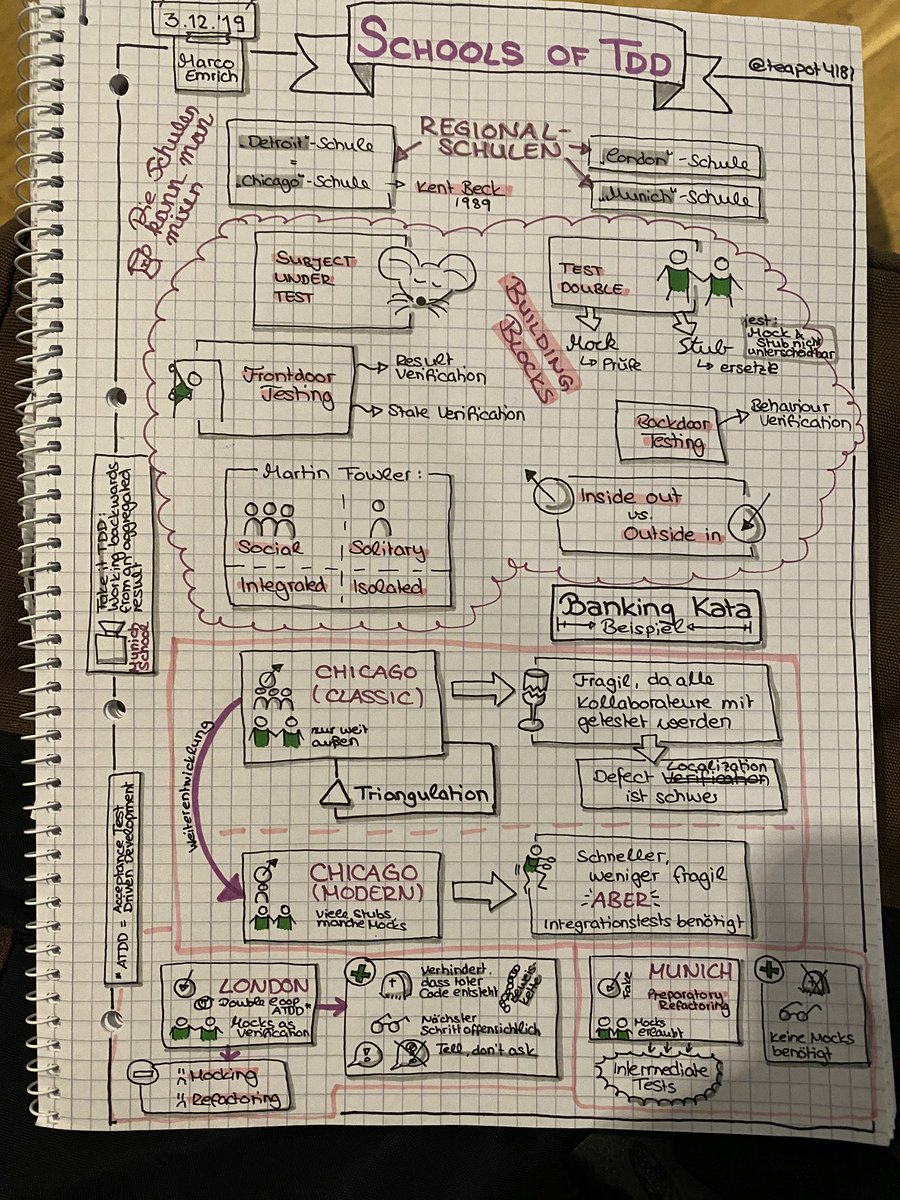 3.12.'19
Marco
Emrich
SCHOOLS OF TDD
@teapot4181
Die Schulen
kann man
mixen
REGIONAL-
SCHULEN
„Detroit"-Schule
=
„Chicago"-Schule
Kent Beck
1989
„London"-Schule
„Munich"-Schule
SUBJECT
UNDER
TEST
BUILDING
BLOCKS
TEST
DOUBLE
Mock
↳ Prüfe
Stub
↳ ersetze
jest:
Mock &
Stub nicht
unterscheidbar
Frontdoor
Testing
Result
Verification
State Verification
Backdoor
Testing
Behaviour
Verification
Martin Fowler:
Social
Solitary
Integrated
Isolated
Inside out
vs.
Outside in
Fake it TDD:
Working backwards
from an aggregated
result
Munich
School
Banking Kata
Beispiel
CHICAGO
(CLASSIC)
nur weit
außen
Fragil, da alle
Kollaborateure mit
getestet werden
Localization
Defect Verification
ist schwer
Triangulation
Weiterentwicklung
CHICAGO
(MODERN)
Viele Stubs,
manche Mocks
Schneller,
weniger fragil
ABER
Integrationstests benötigt
* ATDD = Acceptance Test
Driven Development
LONDON
Double Loop
ATDD*
Mocks as
Verification
Mocking
Refactoring
Verhindert,
dass toter
Code entsteht
Nächster
Schritt offensichtlich
Tell, don't ask
MUNICH
Fake
Preparatory
Refactoring
Mocks
erlaubt
Intermediate
Tests
keine Mocks
benötigt